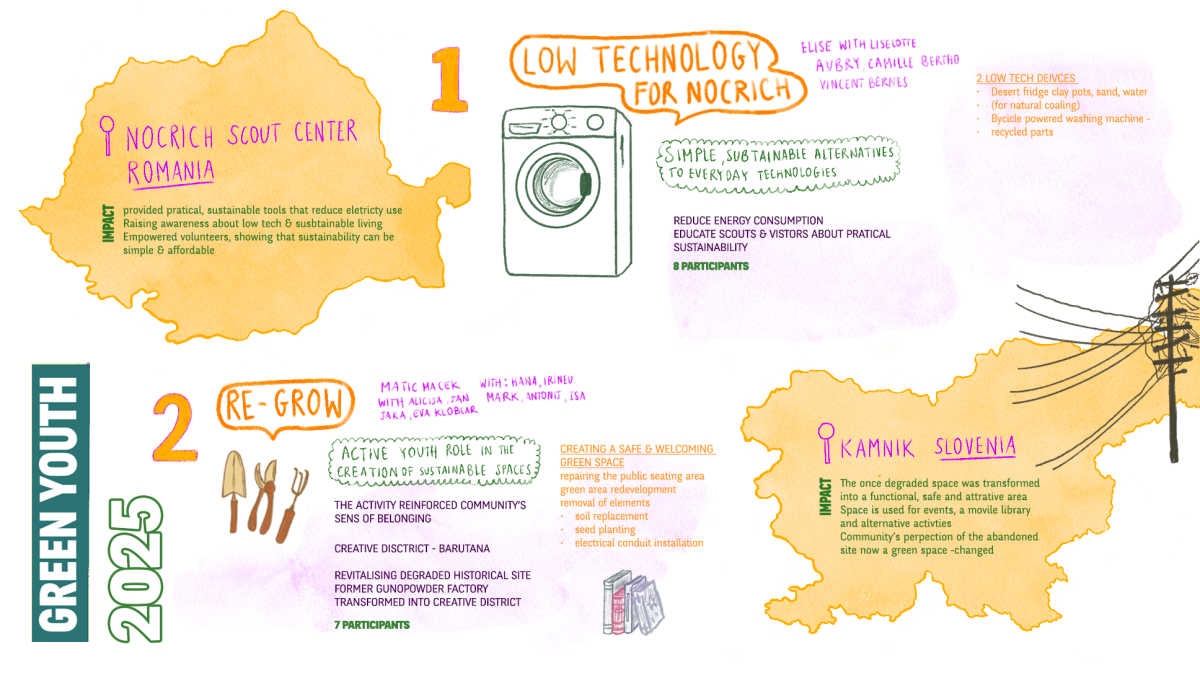 1
LOW TECHNOLOGY
FOR NOCRICH
ELISE WITH LISELOTTE
AUBRY, CAMILLE BERTHO
VINCENT BERNES
2 LOW TECH DEIVCES
· Desert fridge clay pots, sand, water
· (for natural coaling)
· Bycicle powered washing machine -
· recycled parts
NOCRICH SCOUT CENTER
ROMANIA
IMPACT
provided pratical, sustainable tools that reduce eletricty use
Raising awareness about low tech & susbtainable living
Empowered volunteers, showing that sustainability can be
simple & affordable
SIMPLE, SUBTAINABLE ALTERNATIVES
TO EVERYDAY TECHNOLOGIES
REDUCE ENERGY CONSUMPTION
EDUCATE SCOUTS & VISTORS ABOUT PRATICAL
SUSTAINABILITY
8 PARTICIPANTS
GREEN YOUTH
2025
2
RE-GROW
MATIC MACEK WITH: HANA, IRINEU
WITH ALICIJA, JAN MARK, ANTONIJ, ISA
JAKA, EVA KLOBCAR
ACTIVE YOUTH ROLE IN THE
CREATION OF SUSTAINABLE SPACES
THE ACTIVITY REINFORCED COMMUNITY'S
SENS OF BELONGING
CREATIVE DISCTRICT - BARUTANA
REVITALISING DEGRADED HISTORICAL SITE
FORMER GUNOPOWDER FACTORY
TRANSFORMED INTO CREATIVE DISTRICT
7 PARTICIPANTS
CREATING A SAFE & WELCOMING
GREEN SPACE
repairing the public seating area
green area redevelopment
removal of elements
· soil replacement
· seed planting
· electrical conduit installation
KAMNIK SLOVENIA
IMPACT
The once degraded space was transformed
into a functional, safe and attrative area
Space is used for events, a movile library
and alternative activties
Community's perpection of the abandoned
site now a green space -changed